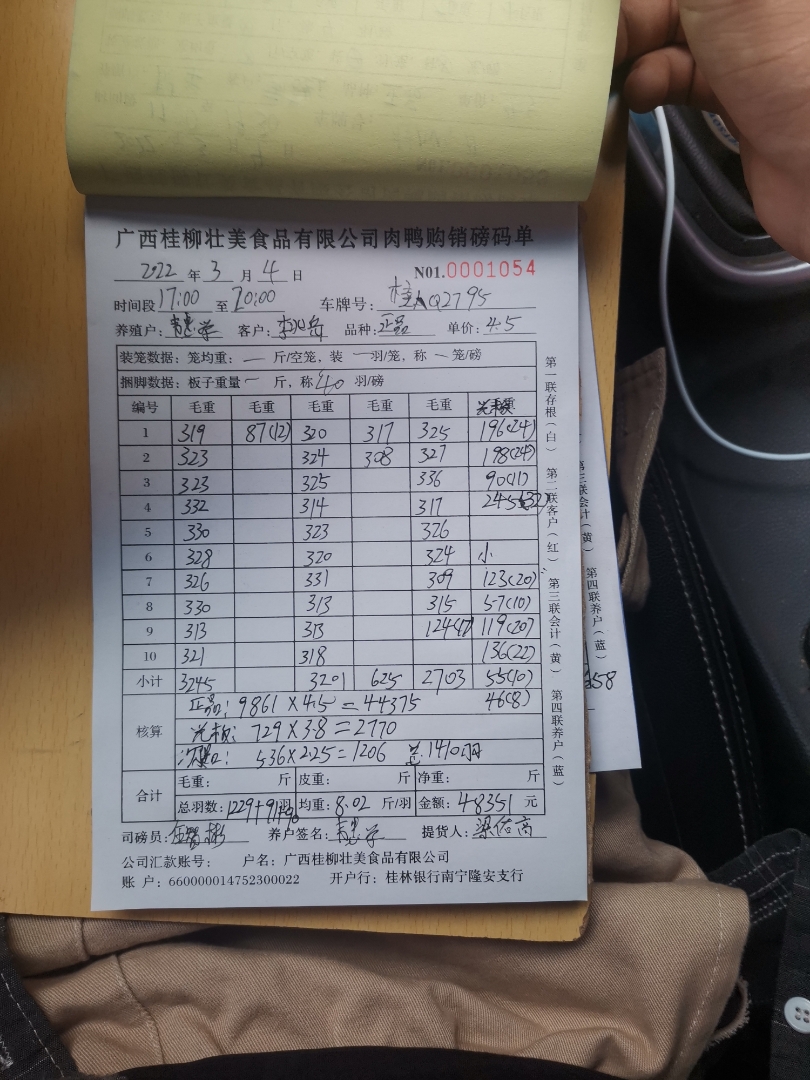 广西桂柳壮美食品有限公司肉鸭购销磅码单
2022 年 3 月 4 日 N01.0001054
时间段 17:00 至 20:00 车牌号： 桂AQ2795
养殖户： 客户： 品种：正品 单价：4.5
装笼数据：笼均重：一 斤/空笼，装 一羽/笼，称 一 笼/磅
捆脚数据：板子重量 一 斤，称 40 羽/磅
编号 毛重 毛重 毛重 毛重 毛重
1 319 87(12) 320 317 325 196(24)
2 323 324 308 327 198(24)
3 323 325 336 90(11)
4 332 314 317 245(32)
5 330 323 326
6 328 320 324 小
7 326 331 309 123(20)
8 330 313 315 57(10)
9 313 313 124(17 119(20)
10 321 318 136(22)
小计 3245 3201 625 2703 55(10)
46(8)
核算 正品：9861×4.5=44375
729×3.8=2770
536×2.25=1206 总1410羽
合计 毛重： 斤 皮重： 斤 净重： 斤
总羽数：1229+91+90羽 均重：8.02 斤/羽 金额：48351 元
司磅员： 养户签名： 提货人：梁佑高
公司汇款账号： 户名：广西桂柳壮美食品有限公司
账 户：660000014752300022 开户行：桂林银行南宁隆安支行
第一联存根（白） 第二联客户（红） 第三联会计（黄） 第四联养户（蓝）
第三联会计（黄） 第四联养户（蓝）
58